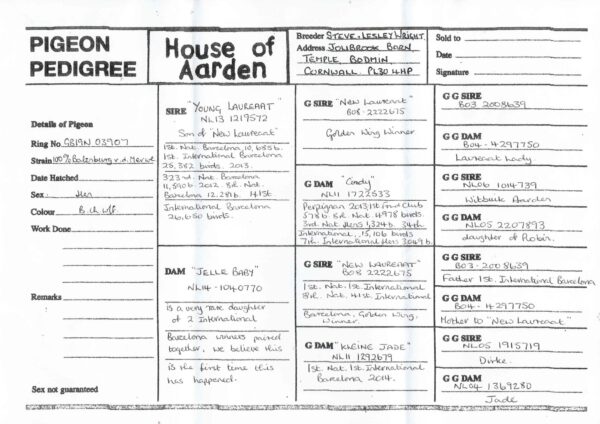 PIGEON
PEDIGREE
House of
Aarden
Breeder STEVE & LESLEY WRIGHT
Address JOLIBROOK BARN
TEMPLE, BODMIN
CORNWALL PL30 4HP
Sold to
Date
Signature
Details of Pigeon
Ring No. GB19N 03907
Strain 100% Batenburg v.d. Merwe
Date Hatched
Sex Hen
Colour B. Ch. Wf.
Work Done
Remarks
Sex not guaranteed
SIRE "YOUNG LAUREAAT"
NL13 1219572
Son of "New Laureaat"
1st. Nat. Barcelona, 10,685 b.
1st. International Barcelona
25,382 birds. 2013.
323rd. Nat. Barcelona
11,590 b. 2012. 8R. Nat.
Barcelona 12.281 b. 41st
International Barcelona
26,650 birds.
DAM "JELLE BABY"
NL14-1040770
is a very rare daughter
of 2 International
Barcelona winners paired
together, we believe this
is the first time this
has happened.
G SIRE "New Laureaat"
B08-2222675
Golden Wing Winner
G DAM "Cindy"
NL11 1722533
Perpignan 2013 1st Fond Club
578 b. 8R. Nat 4978 birds.
3rd. Nat. Hens 1,324 b. 34th.
International. 15,106 birds
7th. International Hens 3,049 b.
G SIRE "NEW LAUREAAT"
B08 2222675
1st. Nat. 1st. International
8R. Nat. 41st. International
Barcelona, Golden Wing,
Winner.
G DAM "KLEINE JADE"
NL11 1292679
1st. Nat. 1st. International
Barcelona 2014.
G G SIRE
B03 2008639
G G DAM
B04-4297750
Laureaat Lady
G G SIRE
NL06 1014739
Witbuik Aarden
G G DAM
NL05 2207893
daughter of Robin.
G G SIRE
B03-2008639
Father 1st. International Barcelona
G G DAM
B04-4297750
Mother to "New Laureaat"
G G SIRE
NL05 1915719
Dirke.
G G DAM
NL04 1369280
Jade